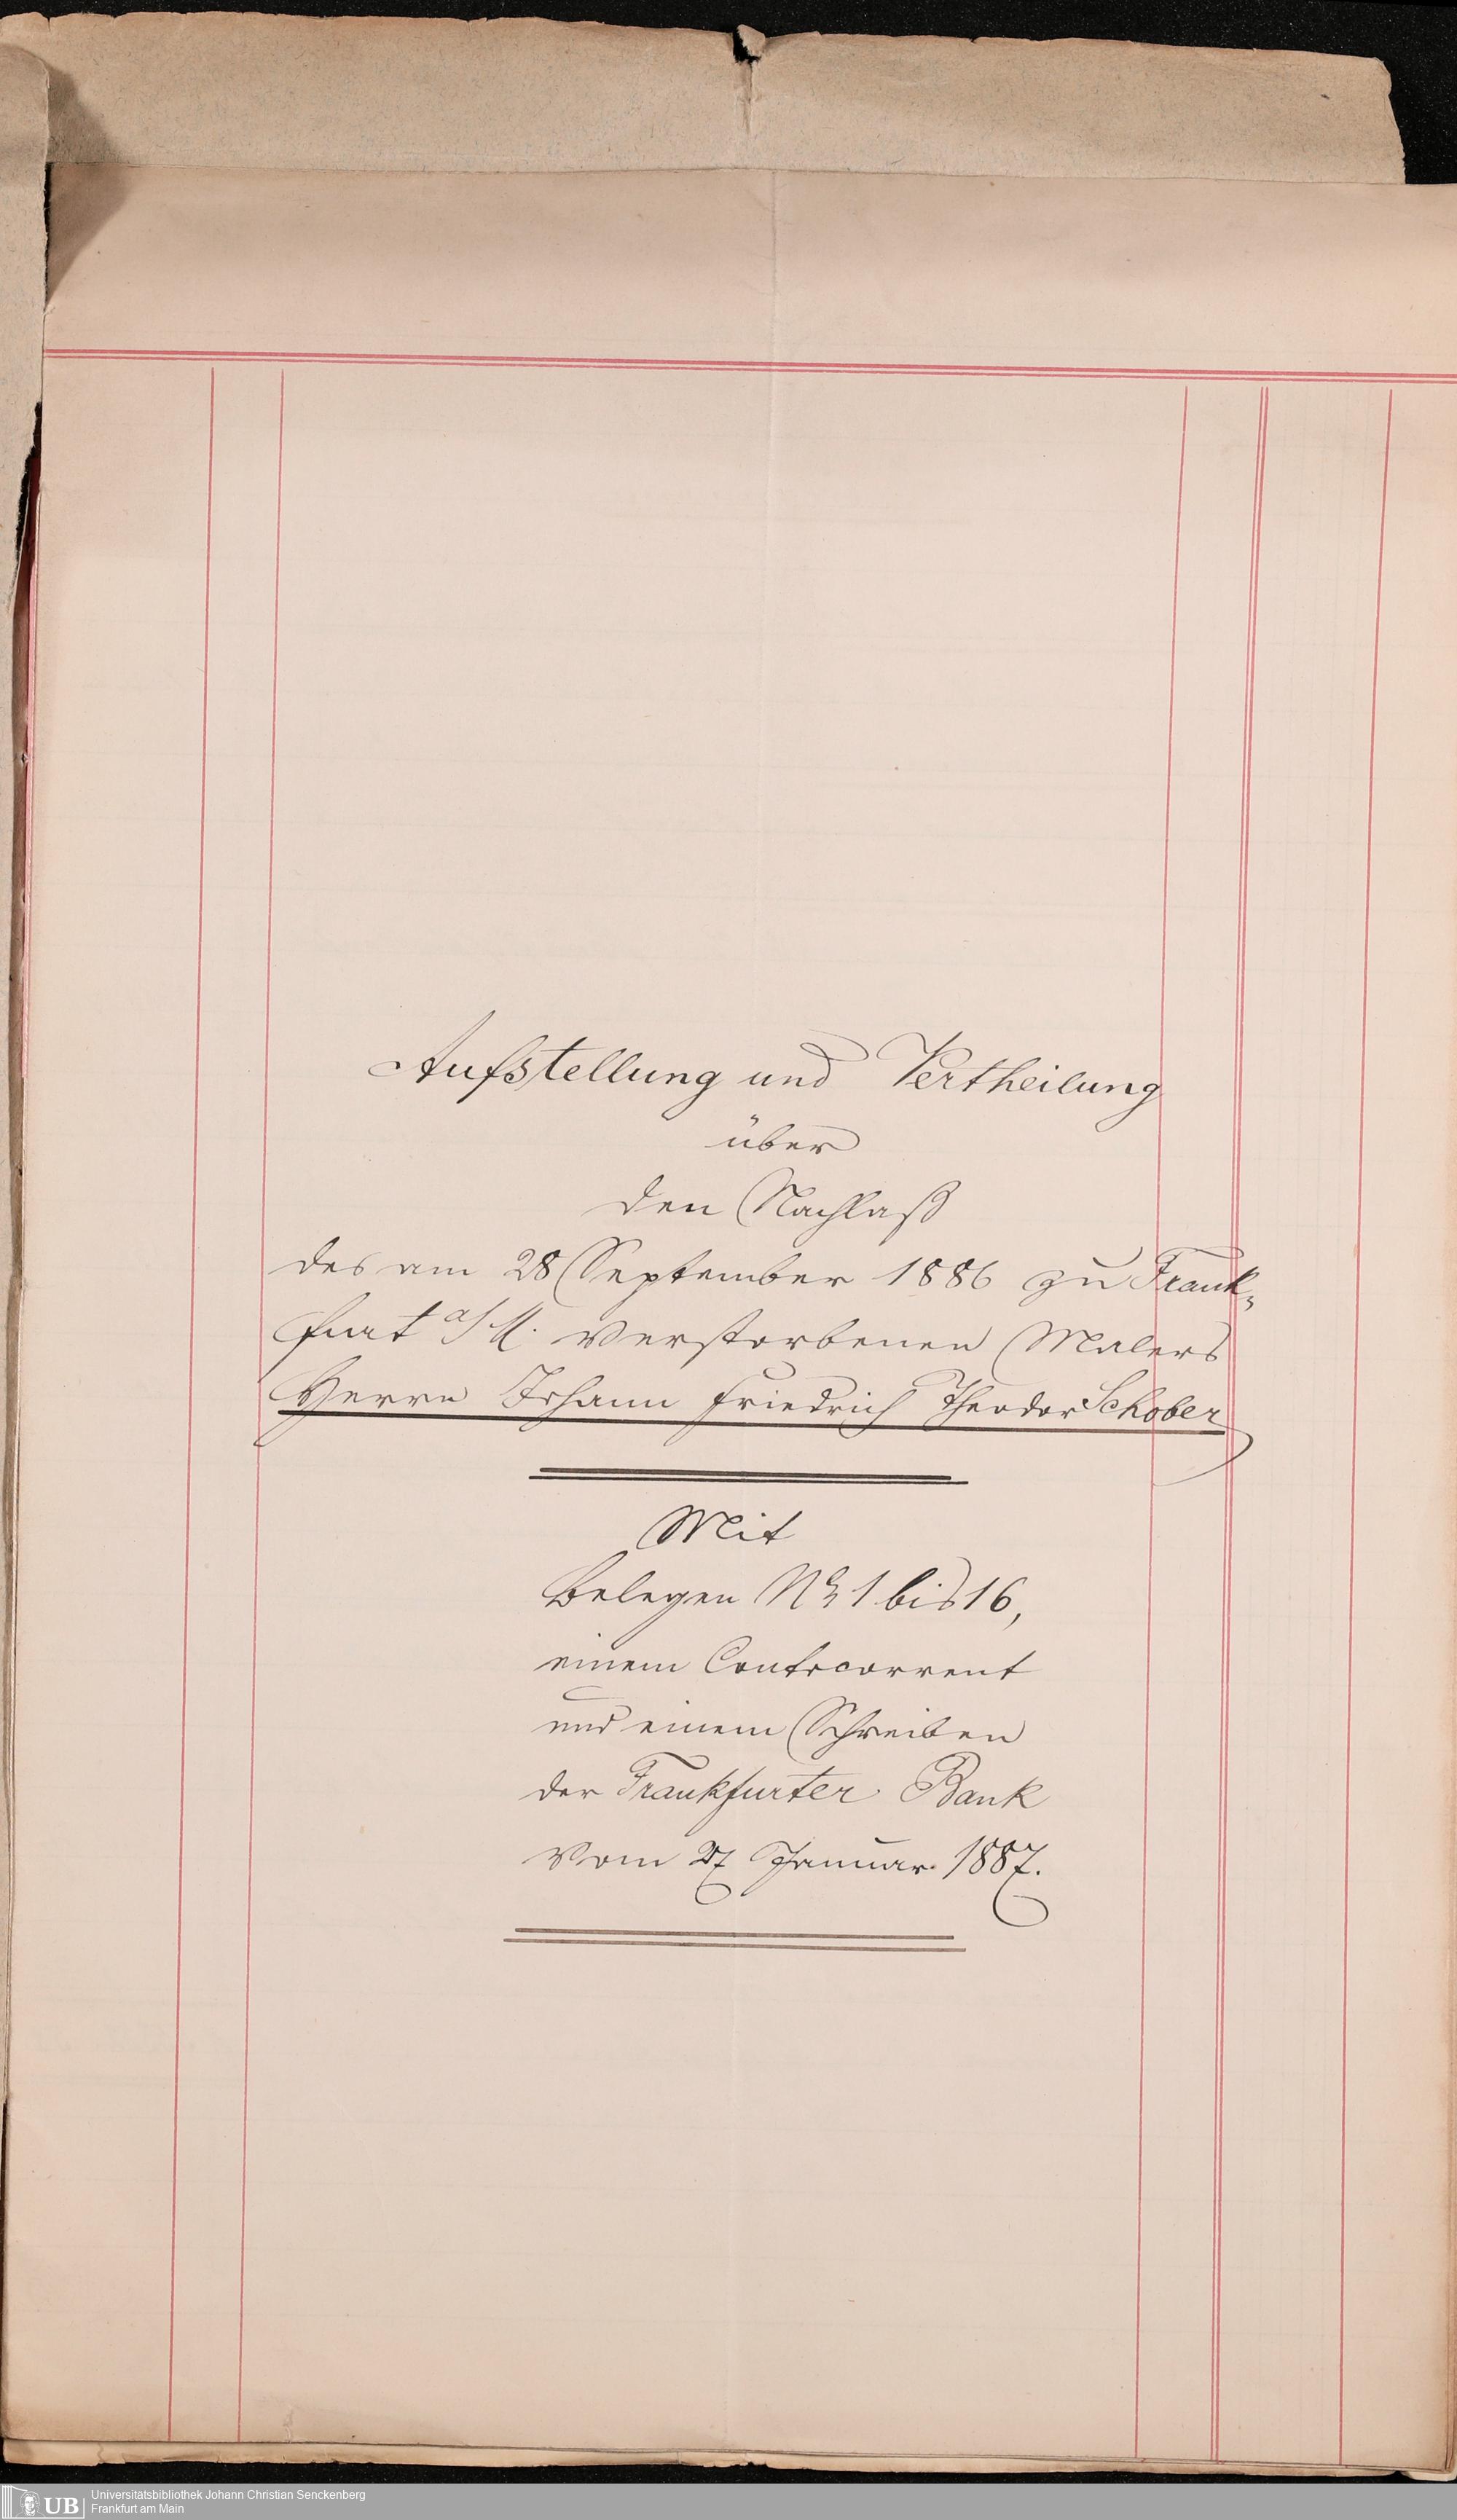 Aufstellung und Vertheilung
über
den Nachlaß
des am 28 September 1886 zu Frank-
furt a/M. verstorbenen Malers
Herrn Johann Friedrich Theodor Schober
Mit
Belegen No 1 bis 16,
einem Contocorrent
und einem Schreiben
der Frankfurter Bank
vom 27 Januar 1887.
UB
Universitätsbibliothek Johann Christian Senckenberg
Frankfurt am Main